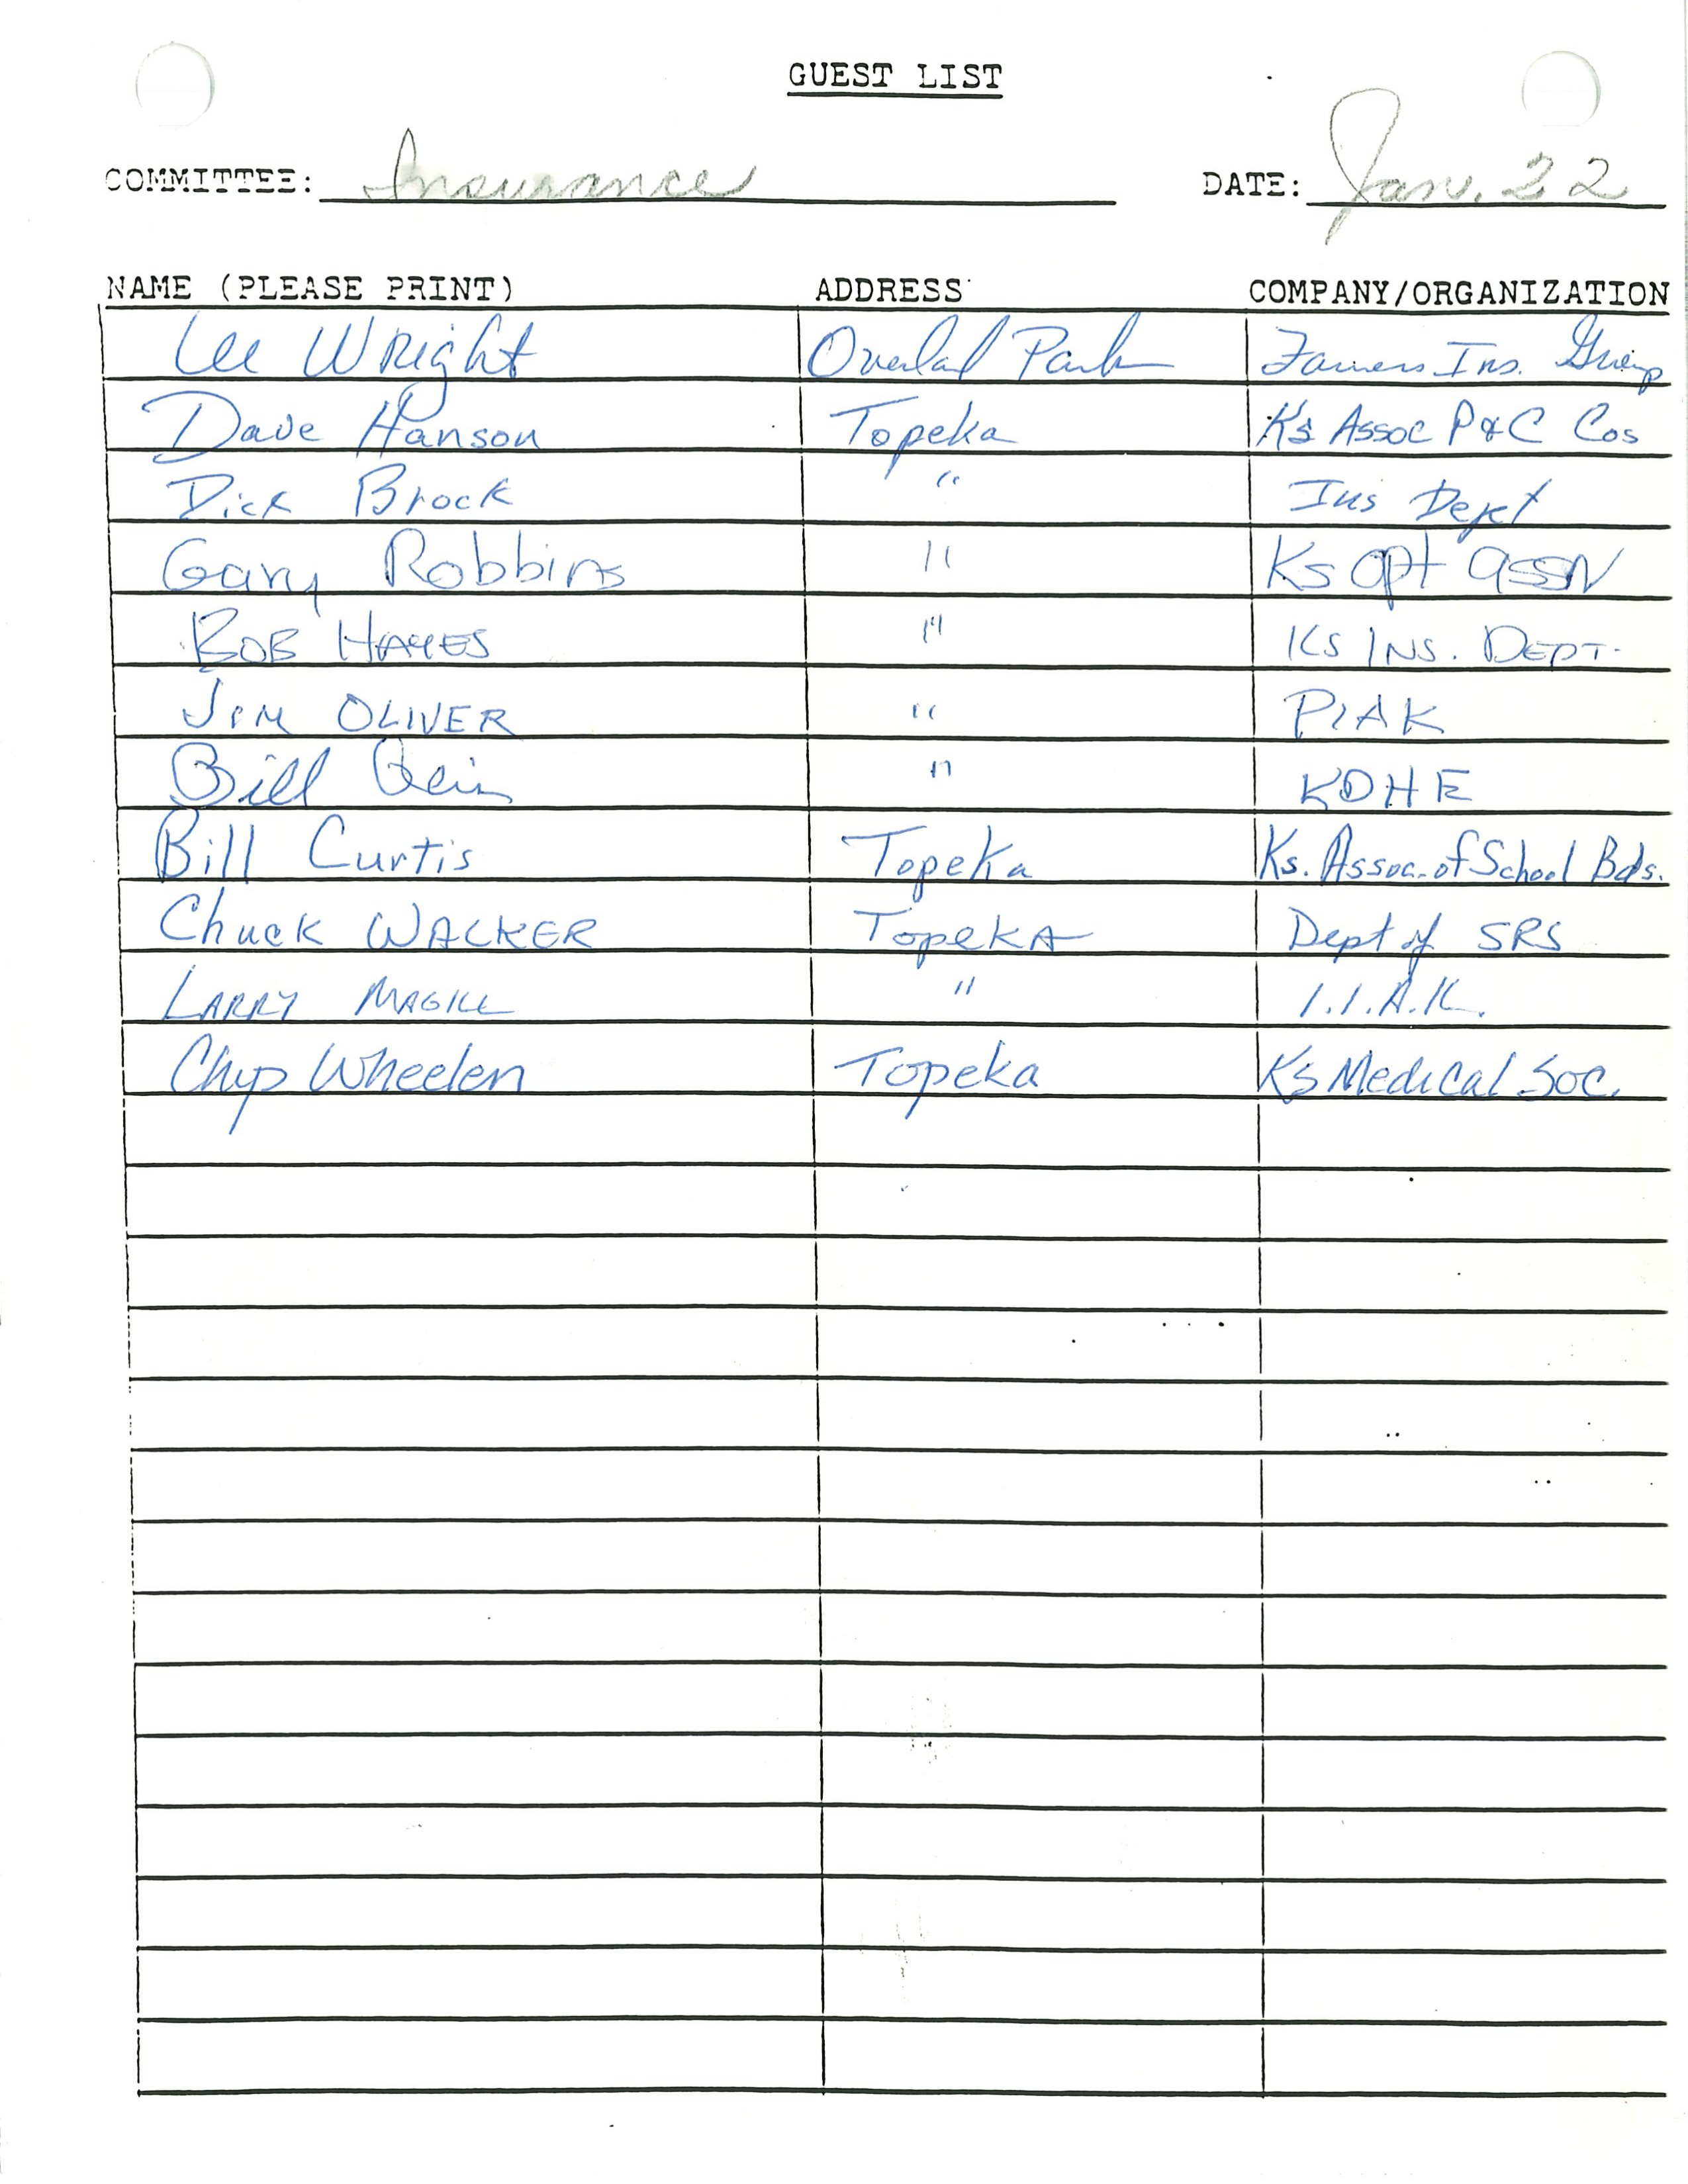 GUEST LIST
COMMITTEE: Insurance DATE: Jan. 22
NAME (PLEASE PRINT) ADDRESS COMPANY/ORGANIZATION
Lee Wright Overland Park Farmers Ins. Group
Dave Hanson Topeka Ks Assoc P&C Cos
Dick Brock " Ins Dept
Gary Robbins " Ks Opt assn
BOB HAYES " KS INS. DEPT.
JIM OLIVER " PIAK
Bill " KDHE
Bill Curtis Topeka Ks. Assoc. of School Bds.
Chuck WALKER TopeKA Dept of SRS
LARRY MAGILL " I.I.A.K.
Chip Wheelen Topeka Ks Medical Soc.